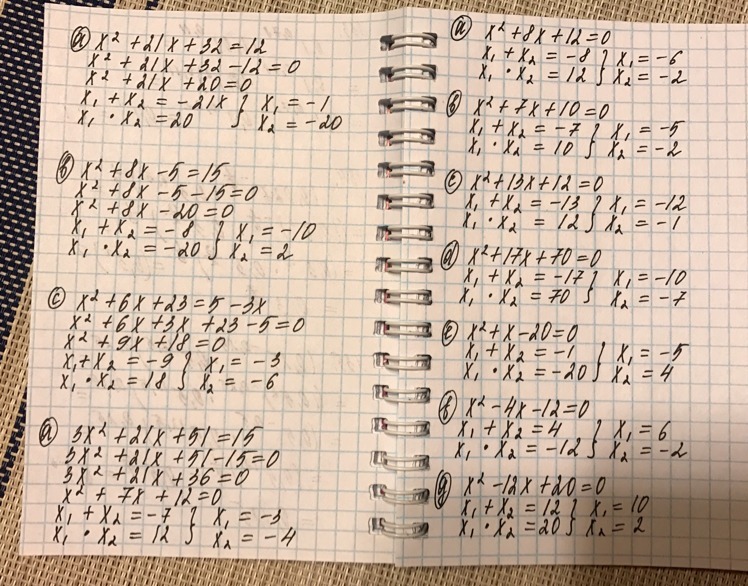 a) x² + 21x + 32 = 12
x² + 21x + 32 - 12 = 0
x² + 21x + 20 = 0
x₁ + x₂ = -21x } x₁ = -1
x₁ · x₂ = 20 } x₂ = -20
b) x² + 8x - 5 = 15
x² + 8x - 5 - 15 = 0
x² + 8x - 20 = 0
x₁ + x₂ = -8 } x₁ = -10
x₁ · x₂ = -20 } x₂ = 2
c) x² + 6x + 23 = 5 - 3x
x² + 6x + 3x + 23 - 5 = 0
x² + 9x + 18 = 0
x₁ + x₂ = -9 } x₁ = -3
x₁ · x₂ = 18 } x₂ = -6
a) 3x² + 21x + 51 = 15
3x² + 21x + 51 - 15 = 0
3x² + 21x + 36 = 0
x² + 7x + 12 = 0
x₁ + x₂ = -7 } x₁ = -3
x₁ · x₂ = 12 } x₂ = -4
a) x² + 8x + 12 = 0
x₁ + x₂ = -8 } x₁ = -6
x₁ · x₂ = 12 } x₂ = -2
b) x² + 7x + 10 = 0
x₁ + x₂ = -7 } x₁ = -5
x₁ · x₂ = 10 } x₂ = -2
c) x² + 13x + 12 = 0
x₁ + x₂ = -13 } x₁ = -12
x₁ · x₂ = 12 } x₂ = -1
d) x² + 17x + 70 = 0
x₁ + x₂ = -17 } x₁ = -10
x₁ · x₂ = 70 } x₂ = -7
e) x² + x - 20 = 0
x₁ + x₂ = -1 } x₁ = -5
x₁ · x₂ = -20 } x₂ = 4
f) x² - 4x - 12 = 0
x₁ + x₂ = 4 } x₁ = 6
x₁ · x₂ = -12 } x₂ = -2
g) x² - 12x + 20 = 0
x₁ + x₂ = 12 } x₁ = 10
x₁ · x₂ = 20 } x₂ = 2